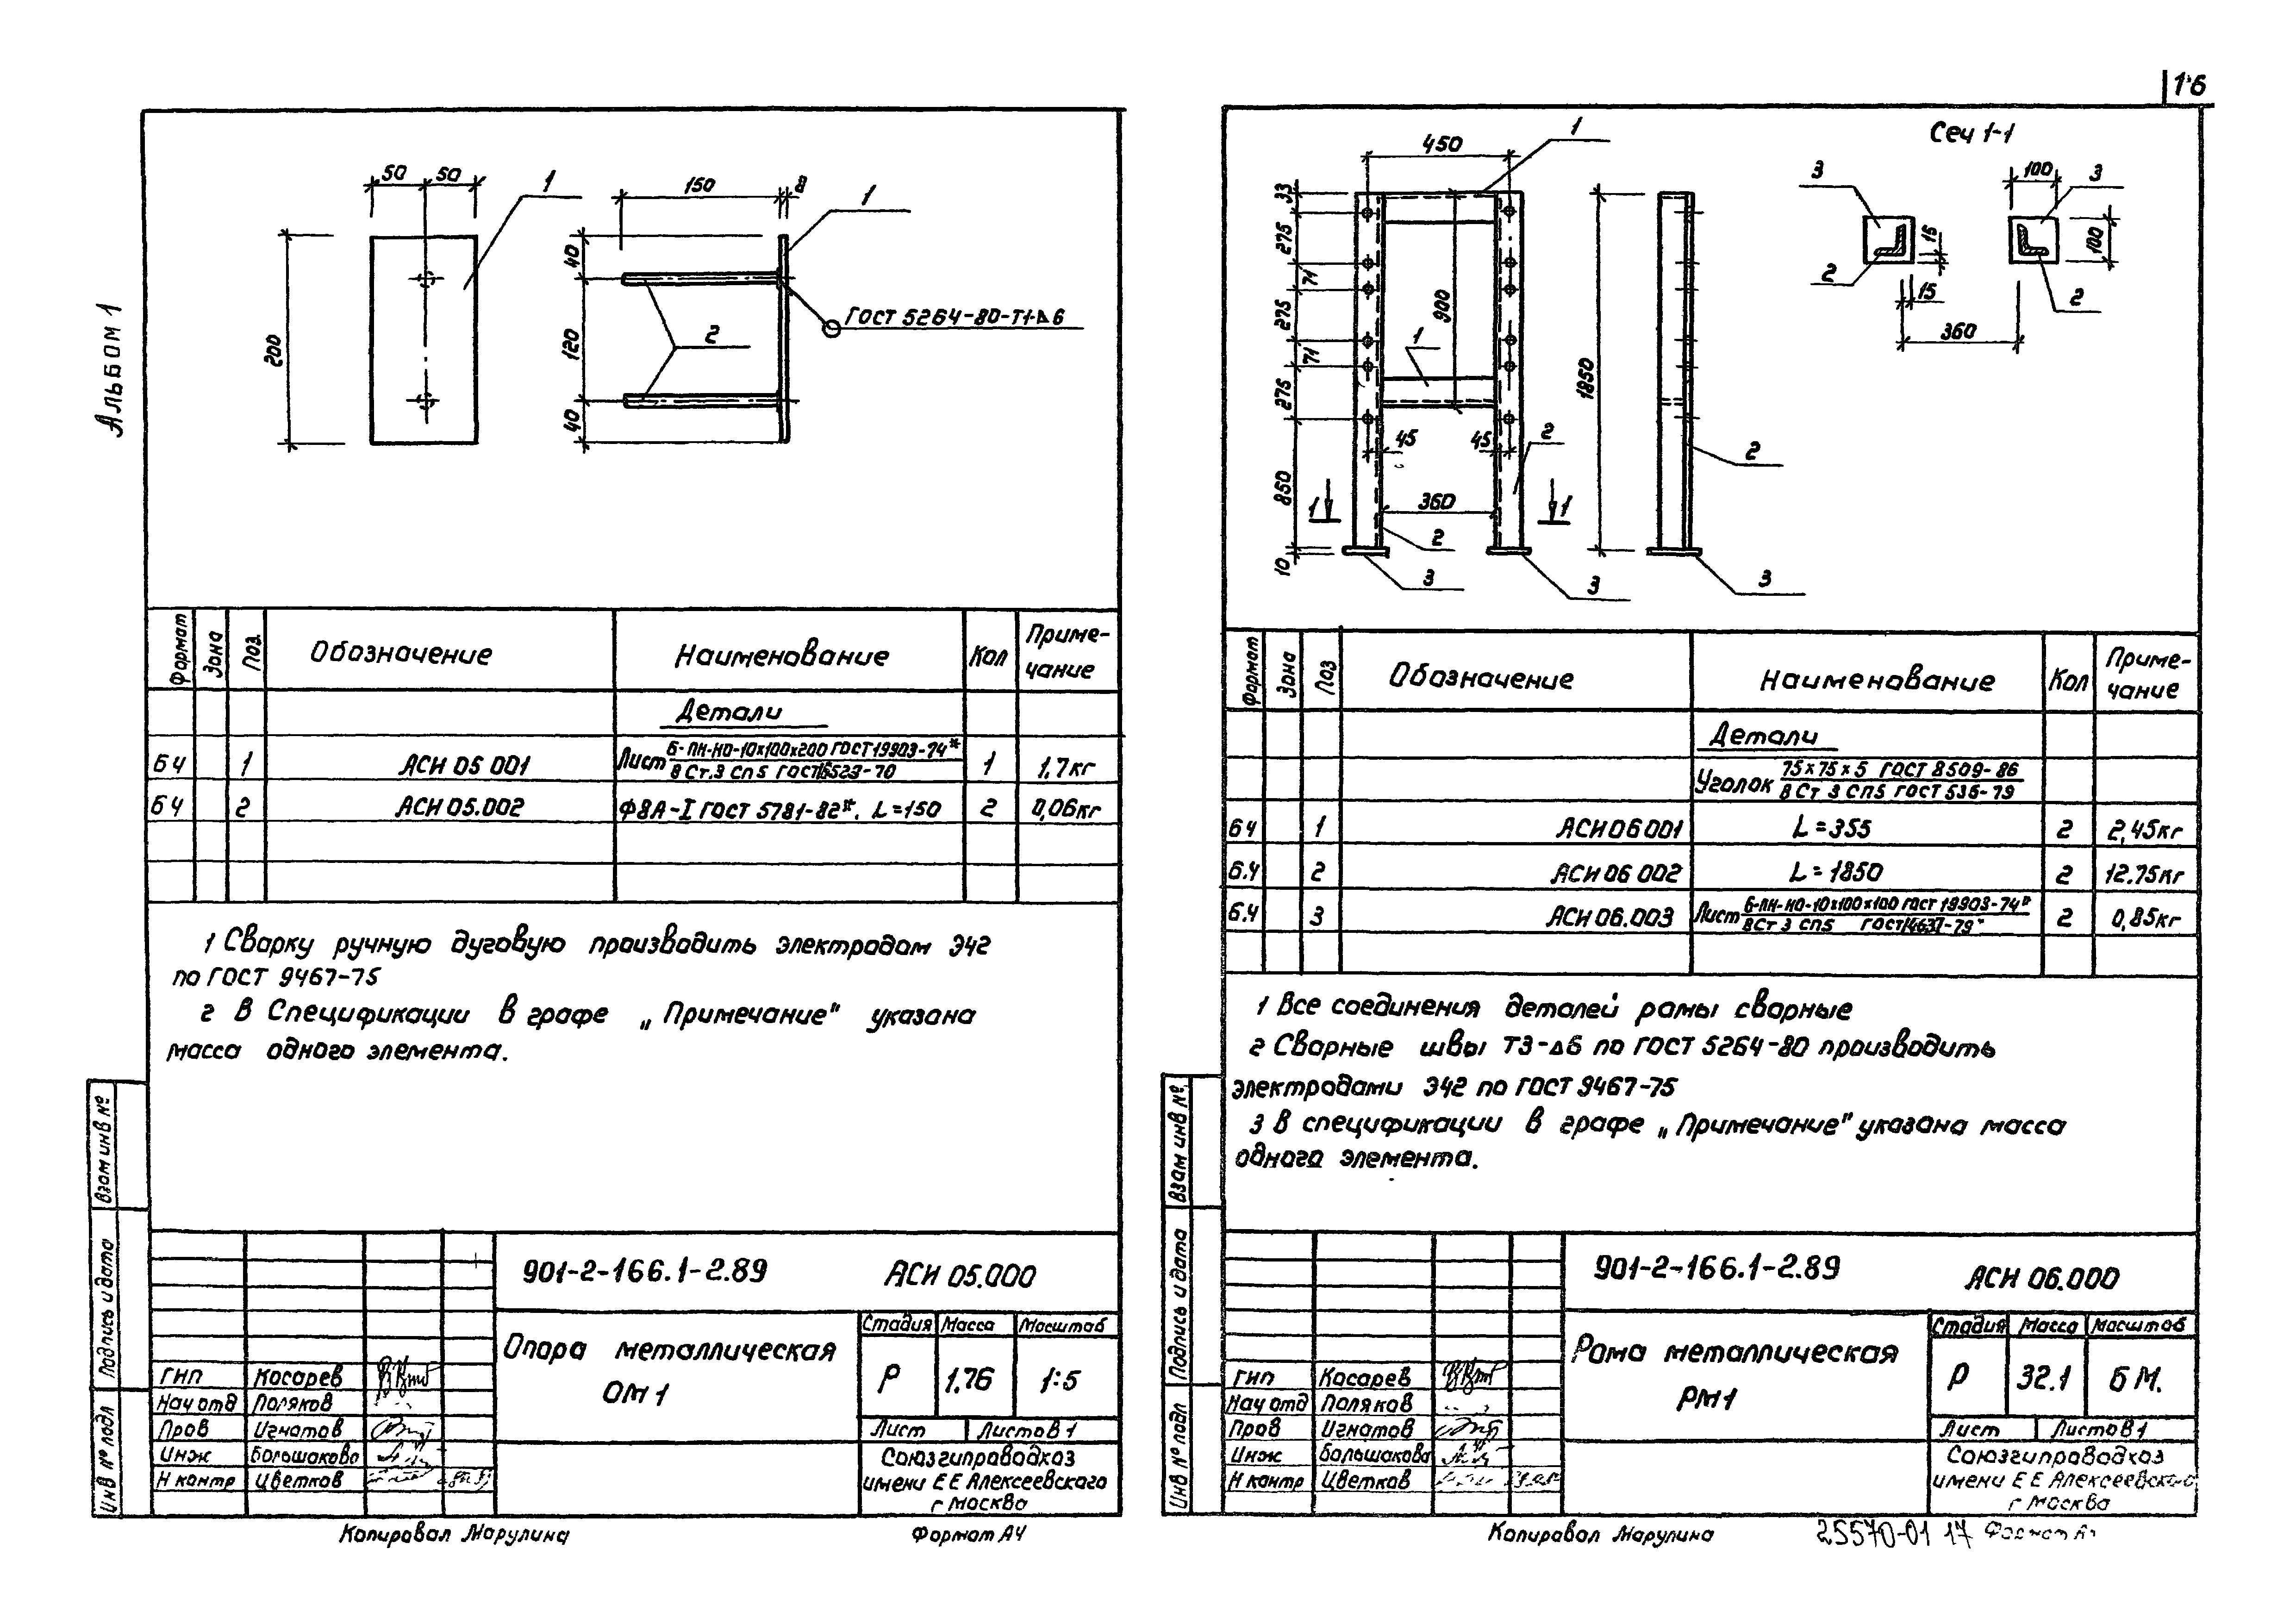 1'6
Альбом 1
50 50
1
200
150 8
1
40
120
40
2
ГОСТ 5264-80-Т1-Δ6
Формат Зона Поз. Обозначение Наименование Кол Приме-чание
Детали
Б4 1 АСИ 05 001 Лист б-ПН-НО-10х100х200 ГОСТ 19903-74* / ВСт.3 Сп5 ГОСТ16523-70 1 1,7кг
Б4 2 АСИ 05.002 Ф8А-I ГОСТ 5781-82*. L=150 2 0,06кг
1 Сварку ручную дуговую производить электродом Э42
по ГОСТ 9467-75
2 В Спецификации в графе „Примечание" указана
масса одного элемента.
Взам инв №
Подпись и дата
Инв № подл
901-2-166.1-2.89 АСИ 05.000
Опора металлическая
ОМ 1
Стадия Масса Масштаб
Р 1.76 1:5
Лист Листов 1
ГИП Косарев
Нач отд Поляков
Пров Игнатов
Инж Большакова
Н контр Цветков
Союзгипроводхоз
имени Е Е Алексеевского
г Москва
Копировал Марулина Формат А4
Сеч 1-1
450
1
33
275
71
275
71
275
850
10
900
1
45 45
2
360
1 1
2
3
3
1850
2
3
3
100
3
100
15
15
2
2
360
Формат Зона Поз Обозначение Наименование Кол Приме-чание
Детали
Уголок 75х75х5 ГОСТ 8509-86 / ВСт 3 СП5 ГОСТ 535-79
Б4 1 АСИ 06 001 L=355 2 2,45кг
Б.4 2 АСИ 06 002 L=1850 2 12.75кг
Б.4 3 АСИ 06.003 Лист б-ПН-НО-10х100х100 ГОСТ 19903-74* / ВСт 3 СП5 ГОСТ14637-79* 2 0,85кг
1 Все соединения деталей рамы сварные
2 Сварные швы Т3-Δ6 по ГОСТ 5264-80 производить
электродами Э42 по ГОСТ 9467-75
3 В спецификации в графе „Примечание" указана масса
одного элемента.
Взам инв №
Подпись и дата
Инв № подл
901-2-166.1-2.89 АСИ 06.000
Рама металлическая
РМ1
Стадия Масса Масштаб
Р 32.1 Б М.
Лист Листов 1
ГИП Косарев
Нач отд Поляков
Пров Игнатов
Инж Большакова
Н контр Цветков
Союзгипроводхоз
имени Е Е Алексеевского
г Москва
Копировал Марулина 25570-01 17 Формат